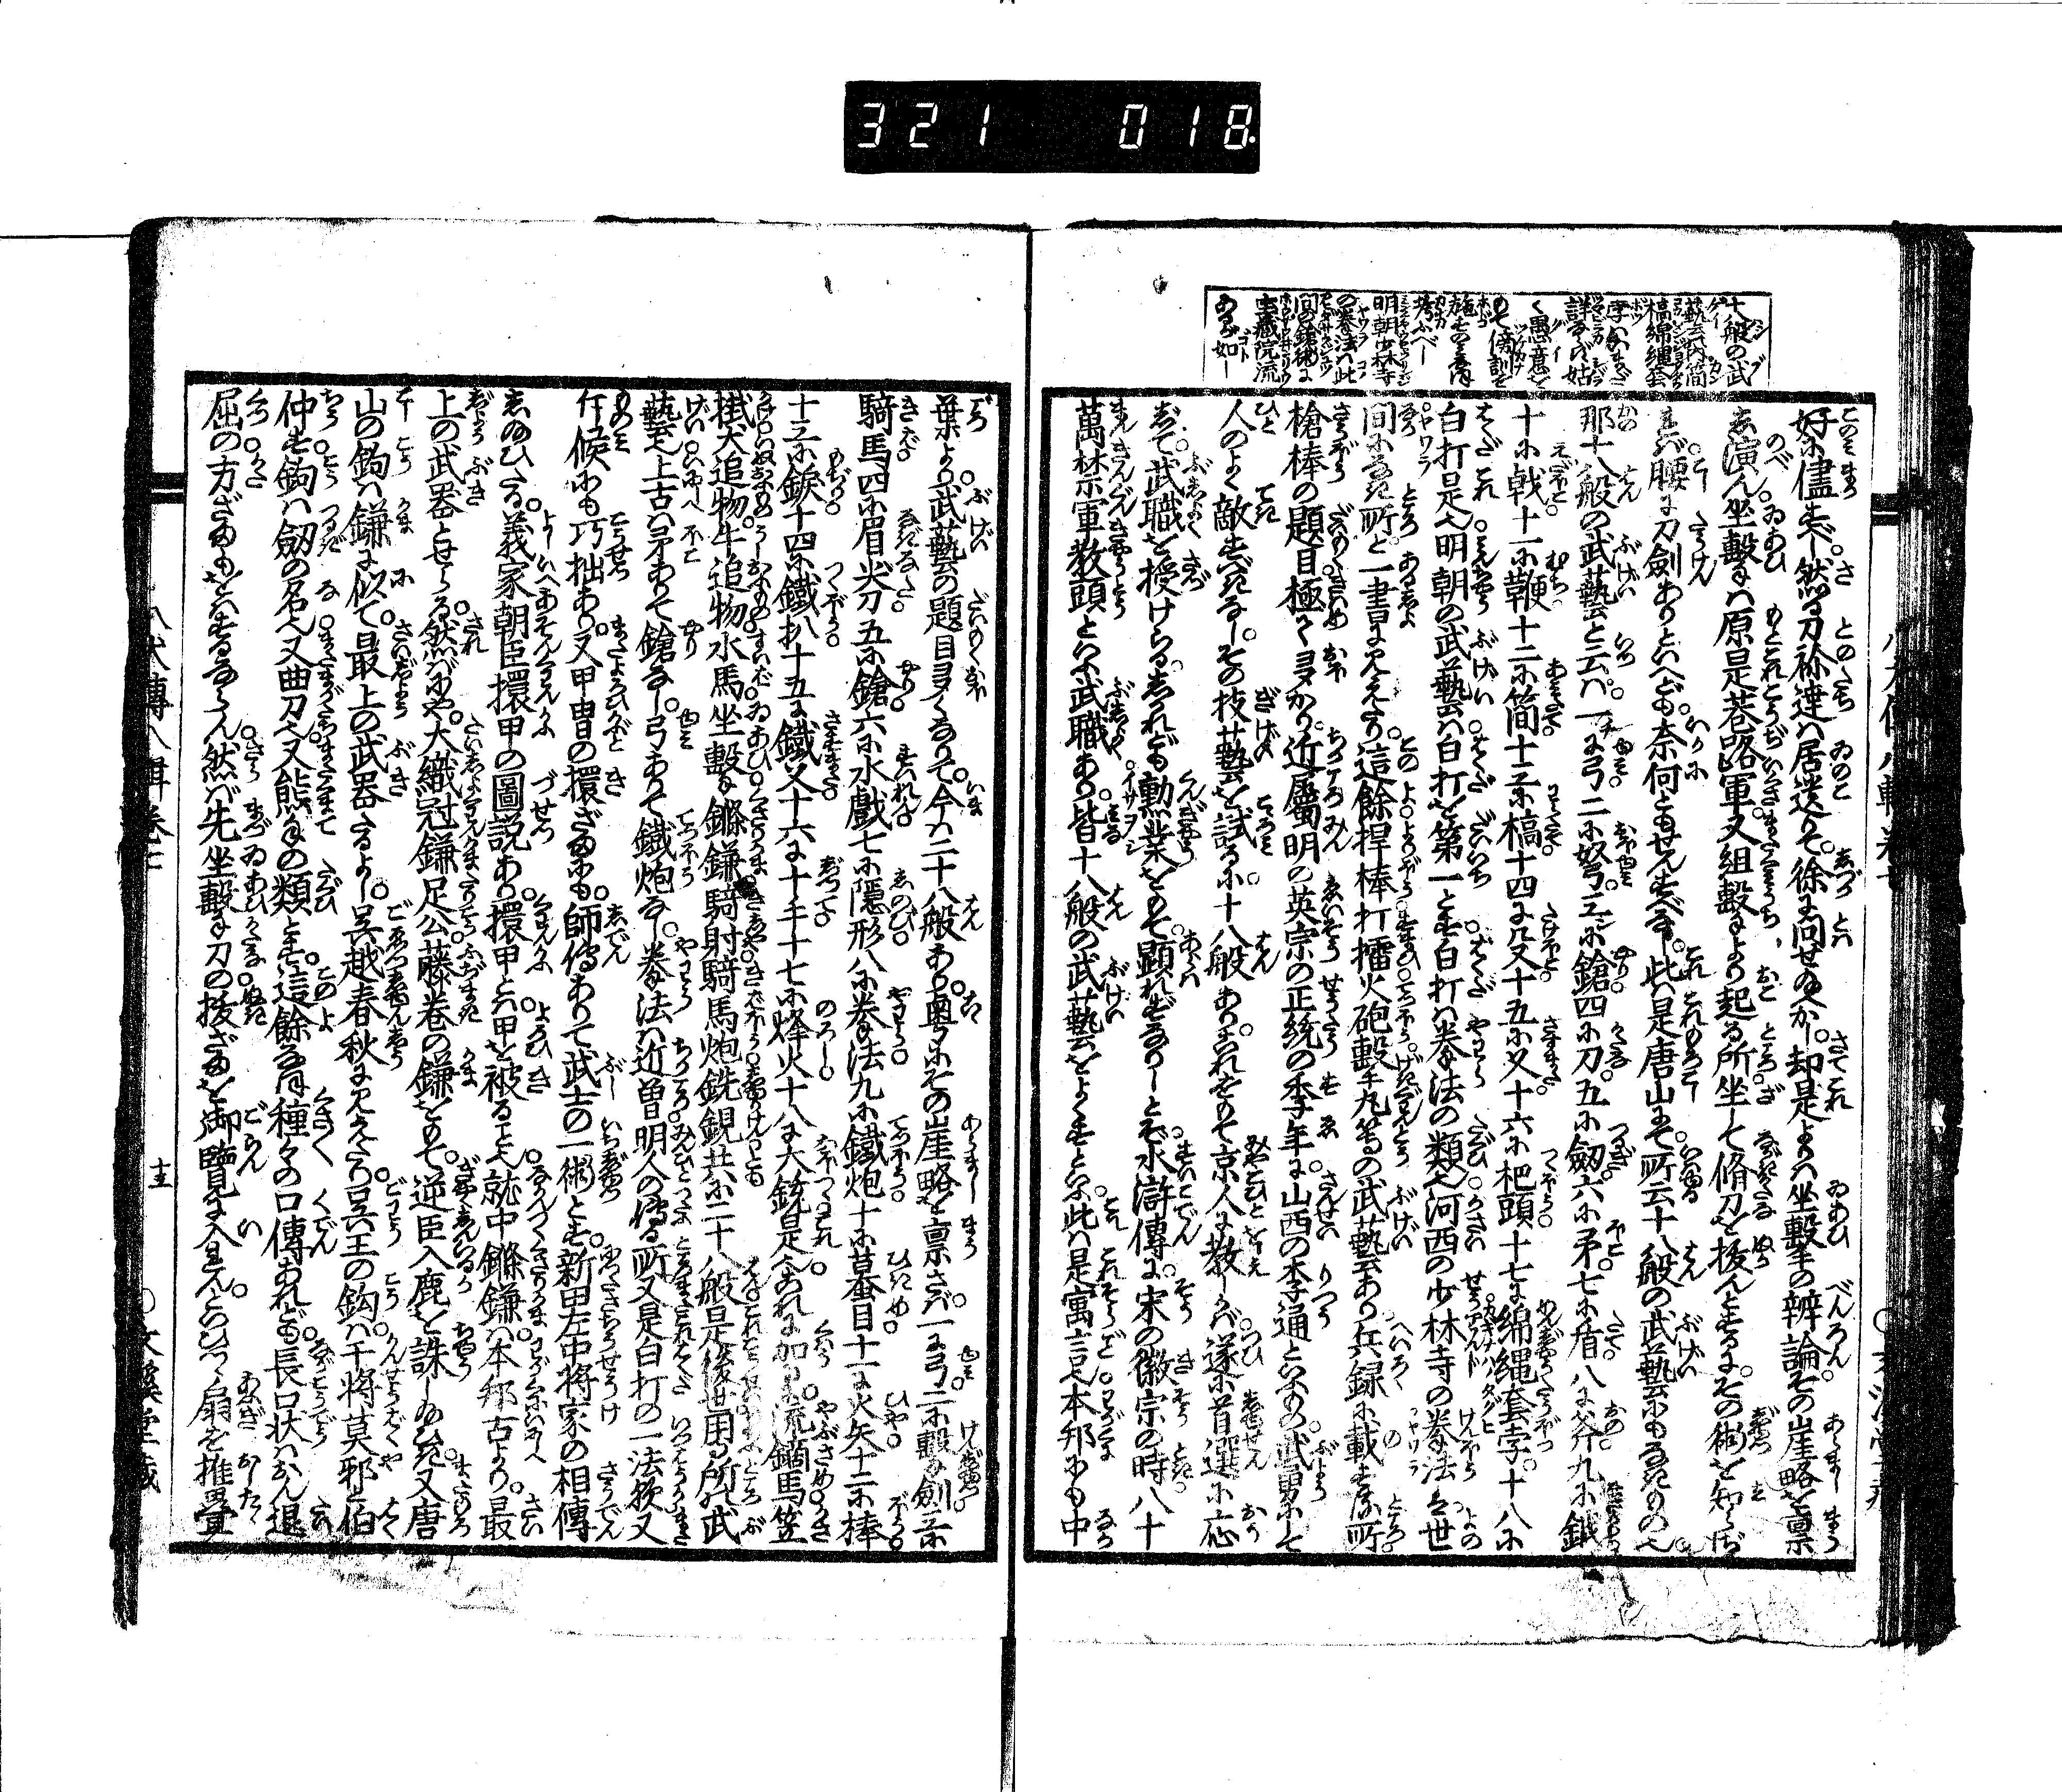 321 018
十八般の武
藝云云內簡
槁綿縄套
孛いまだ
詳ならず姑
く愚意を
もて傍訓を
施すのミ猶
考ふべし
明朝少林寺
の拳法ハ此
間の鎗術に
宝蔵院流
あるが如し
好に儘すべし然る刀祢達ハ居迭りて徐に問せ給へかし却是よりハ坐擊の辨論その崖略を禀
し演ん坐擊ハ原是苍路軍又組擊より起る所坐して脩刀を抜んとするにその術を知らざ
れバ腰に刀劍ありといへども奈何ともせんすべなし此ハ是唐山にて所云十八般の武藝にもなきもの也
那十八般の武藝と云ハ一に弓二に弩三に鎗四に刀五に劔六に矛七に盾八に斧九に鉞
十に戟十一に鞭十二に簡十三に槁十四に殳十五に叉十六に杷頭十七に綿縄套孛十八に
白打是也明朝の武藝ハ白打を第一とす白打ハ拳法の類也河西の少林寺の拳法ハ世
間になき所と一書に見えたり這餘捍棒打擂火砲擊手丸等の武藝あり兵録に載する所
槍棒の題目極めて多かり近属明の英宗の正統の季年に山西の李通といふもの武勇にして
人のよく敵すべきなしその技藝を試るに十八般ありこれをもて京人に教しかバ遂に首選に応
じて武職を授けらるしかれども勲業をもて顕れずなりしとぞ水滸傳に宋の徽宗の時八十
萬禁軍教頭といふ武職あり皆十八般の武藝をよくすといふ此ハ是寓言也本邦にも中
葉より武藝の題目多くなりて今ハ二十八般あり奥にその崖略を禀さバ一に弓二に擊劍三に
騎馬四に眉尖刀五に鎗六に水戲七に隠形八に拳法九に鐵炮十に蟇目十一に火矢十二に棒
十三に鏃十四に鐵扒十五に鐵叉十六に十手十七に烽火十八に大銃是也これに加るに流鏑馬笠
掛犬追物牛追物水馬坐擊鏈鎌騎射騎馬炮銃鋧共に二十八般是後世用る所の武
藝也上古ハ矛ありて鎗なし弓ありて鐵炮なし拳法ハ近曽明人の傳る所又是白打の一法歟又
斥候にも巧拙あり又甲冑の擐ざまにも師傳ありて武士の一術とす新田左中将家の相傳
し給ひたる義家朝臣擐甲の圖説あり擐甲とハ甲を被る也就中鏈鎌ハ本邦古より最
上の武器とせらる然ばにや大織冠鎌足公藤巻の鎌をもて逆臣入鹿を誅し給ひき又唐
山の鉤ハ鎌に似て最上の武器たるよし呉越春秋に見えたり呉王の鈎ハ干将莫邪と伯
仲す鉤ハ劔の名也又曲刀也又熊手の類とす這餘なほ種々の口傳あれども長口状ハおん退
屈の方ざまもをハするならん然ば先坐擊刀の抜ざまを御覽に入れんといひつゝ扇を推畳
八犬傳八輯卷七
十三
文溪堂藏